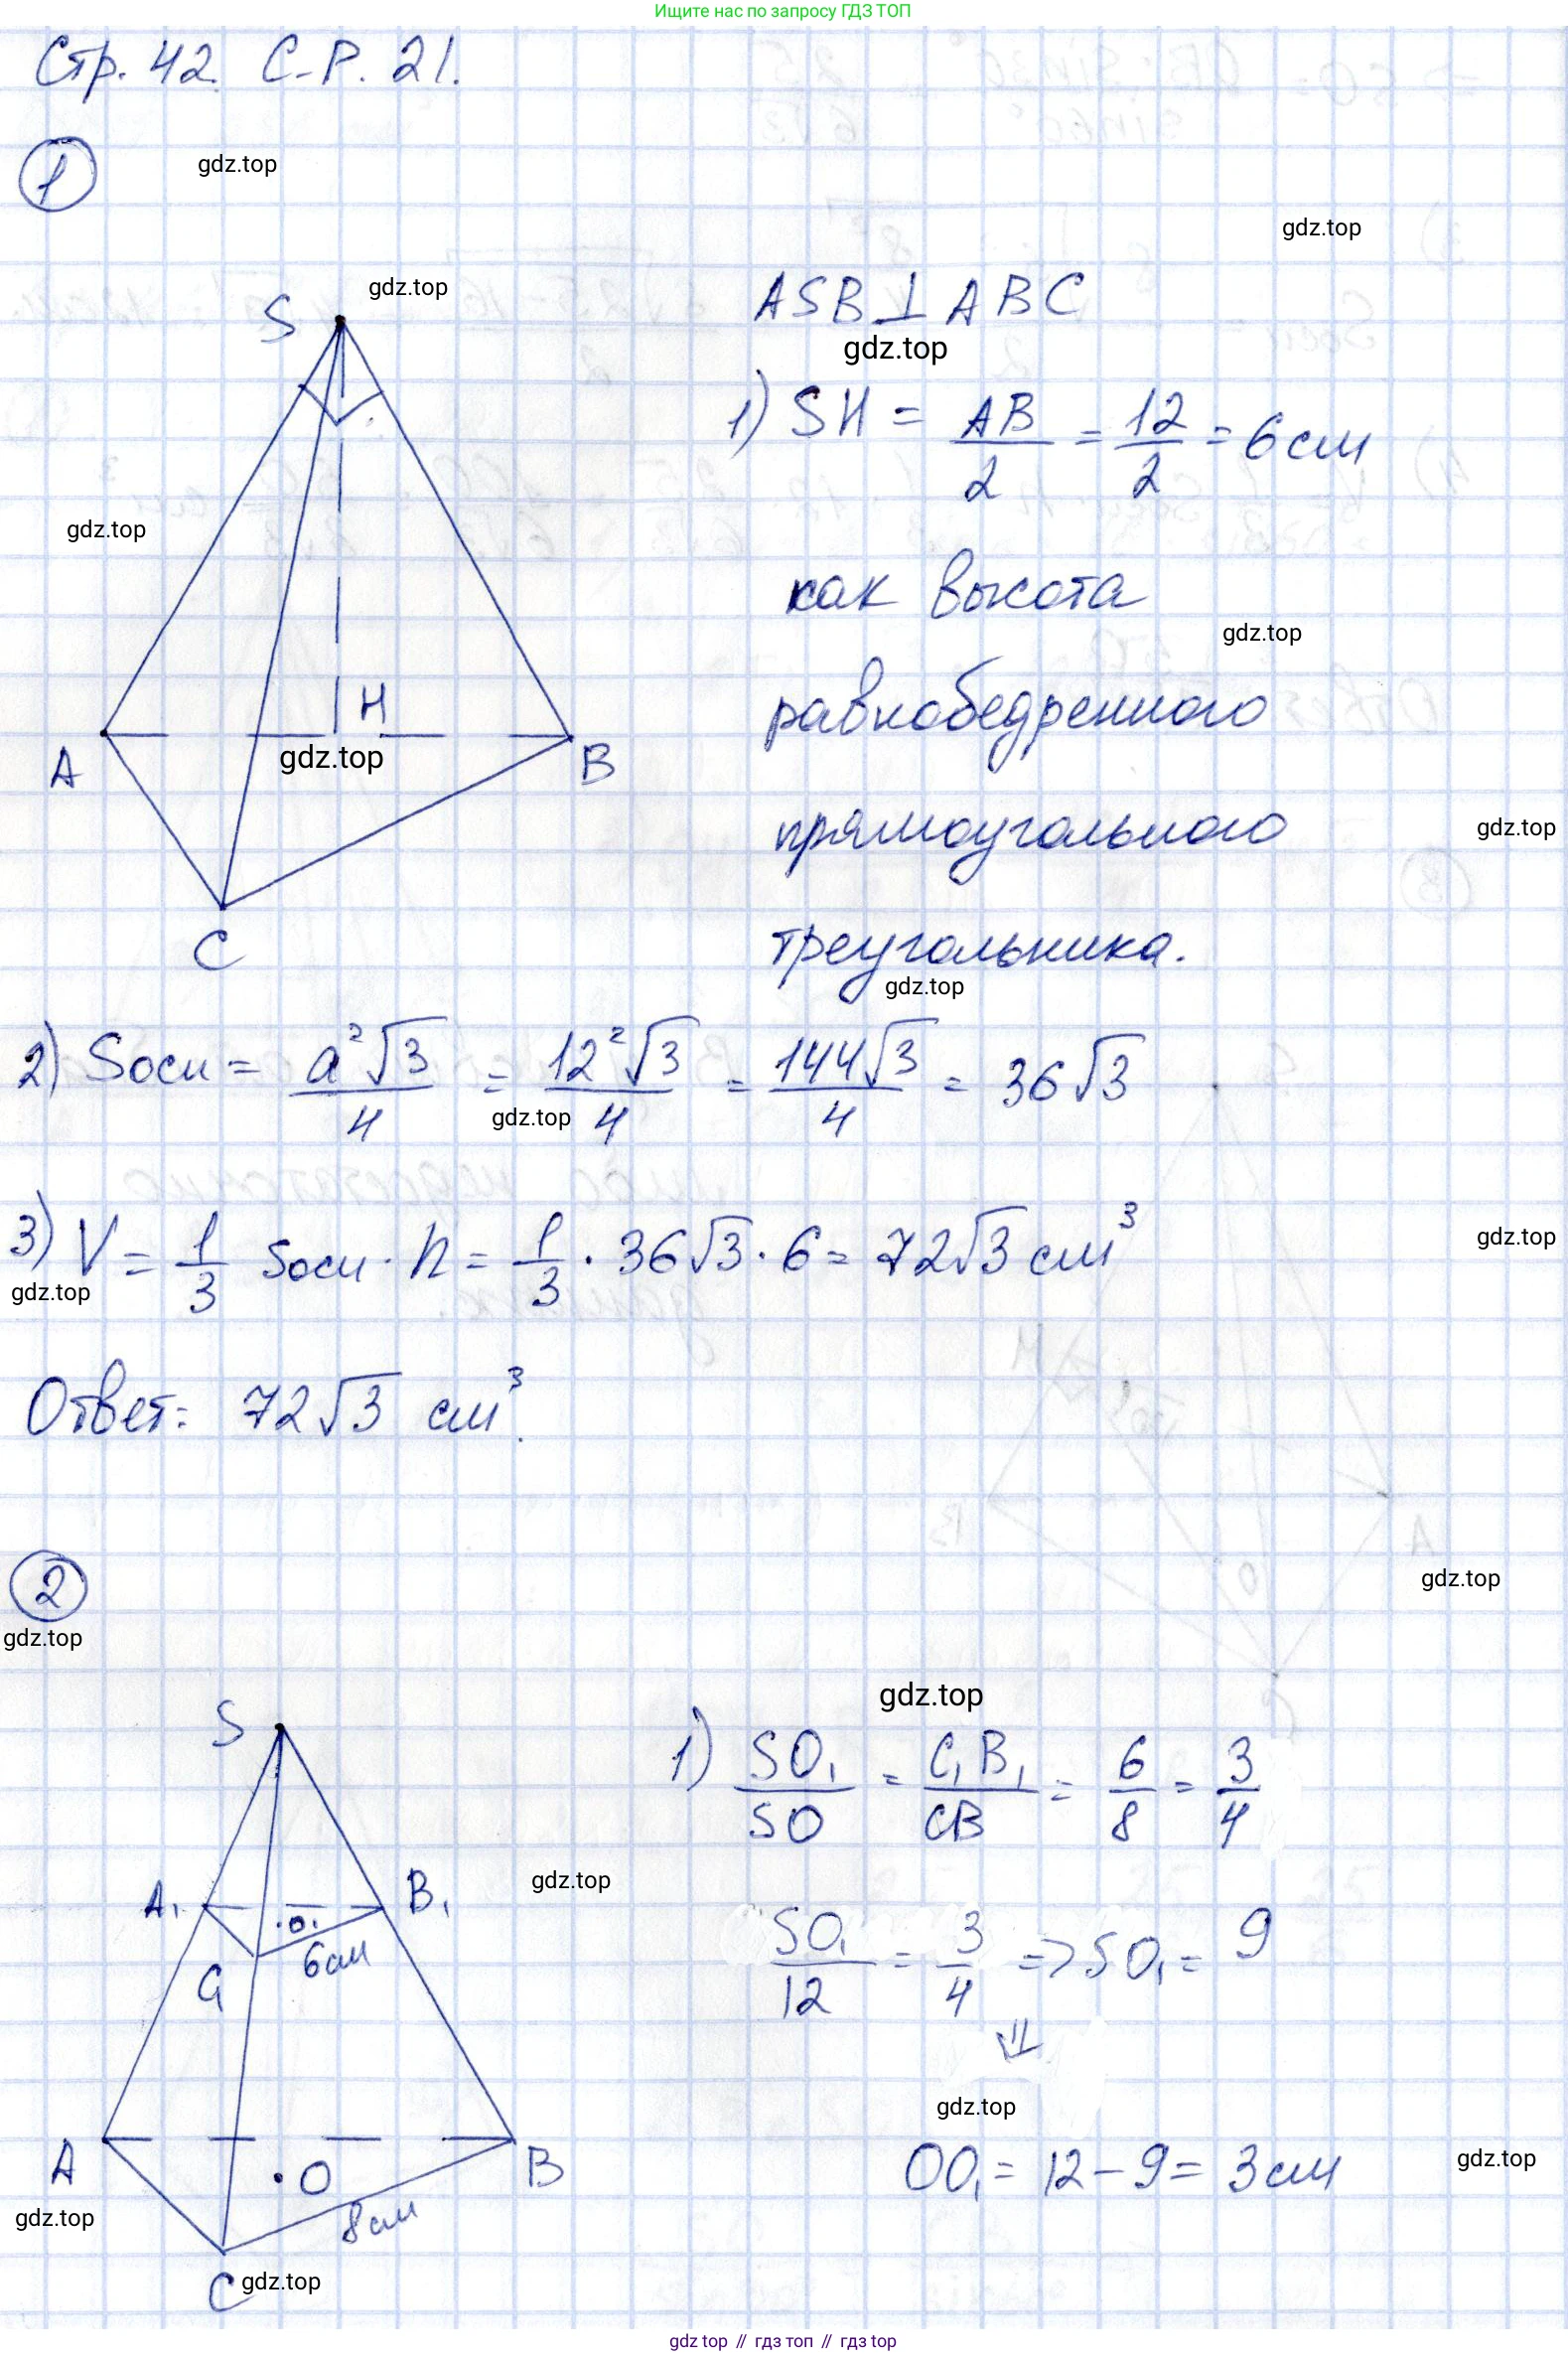 Ищите нас по запросу ГДЗ ТОП
Стр. 42. С-Р. 21.
1
gdz.top
gdz.top
gdz.top
S
ASB ⊥ ABC
gdz.top
1) SH = AB/2 = 12/2 = 6 см
gdz.top
как высота
gdz.top
равнобедренного
H
A
gdz.top
B
прямоугольного
gdz.top
C
треугольника.
gdz.top
2) Sосн = a²√3/4 = 12²√3/4 = 144√3/4 = 36√3
gdz.top
3) V = 1/3 Sосн · h = 1/3 · 36√3 · 6 = 72√3 см³
gdz.top
gdz.top
Ответ: 72√3 см³.
2
gdz.top
gdz.top
gdz.top
S
1) SO₁/SO = C₁B₁/CB = 6/8 = 3/4
gdz.top
A₁
B₁
O₁
6см
C₁
SO₁/12 = 3/4 => SO₁ = 9
⇓
gdz.top
A
O
B
8см
OO₁ = 12 - 9 = 3 см
gdz.top
gdz.top
C
gdz.top
gdz top // гдз топ // гдз top